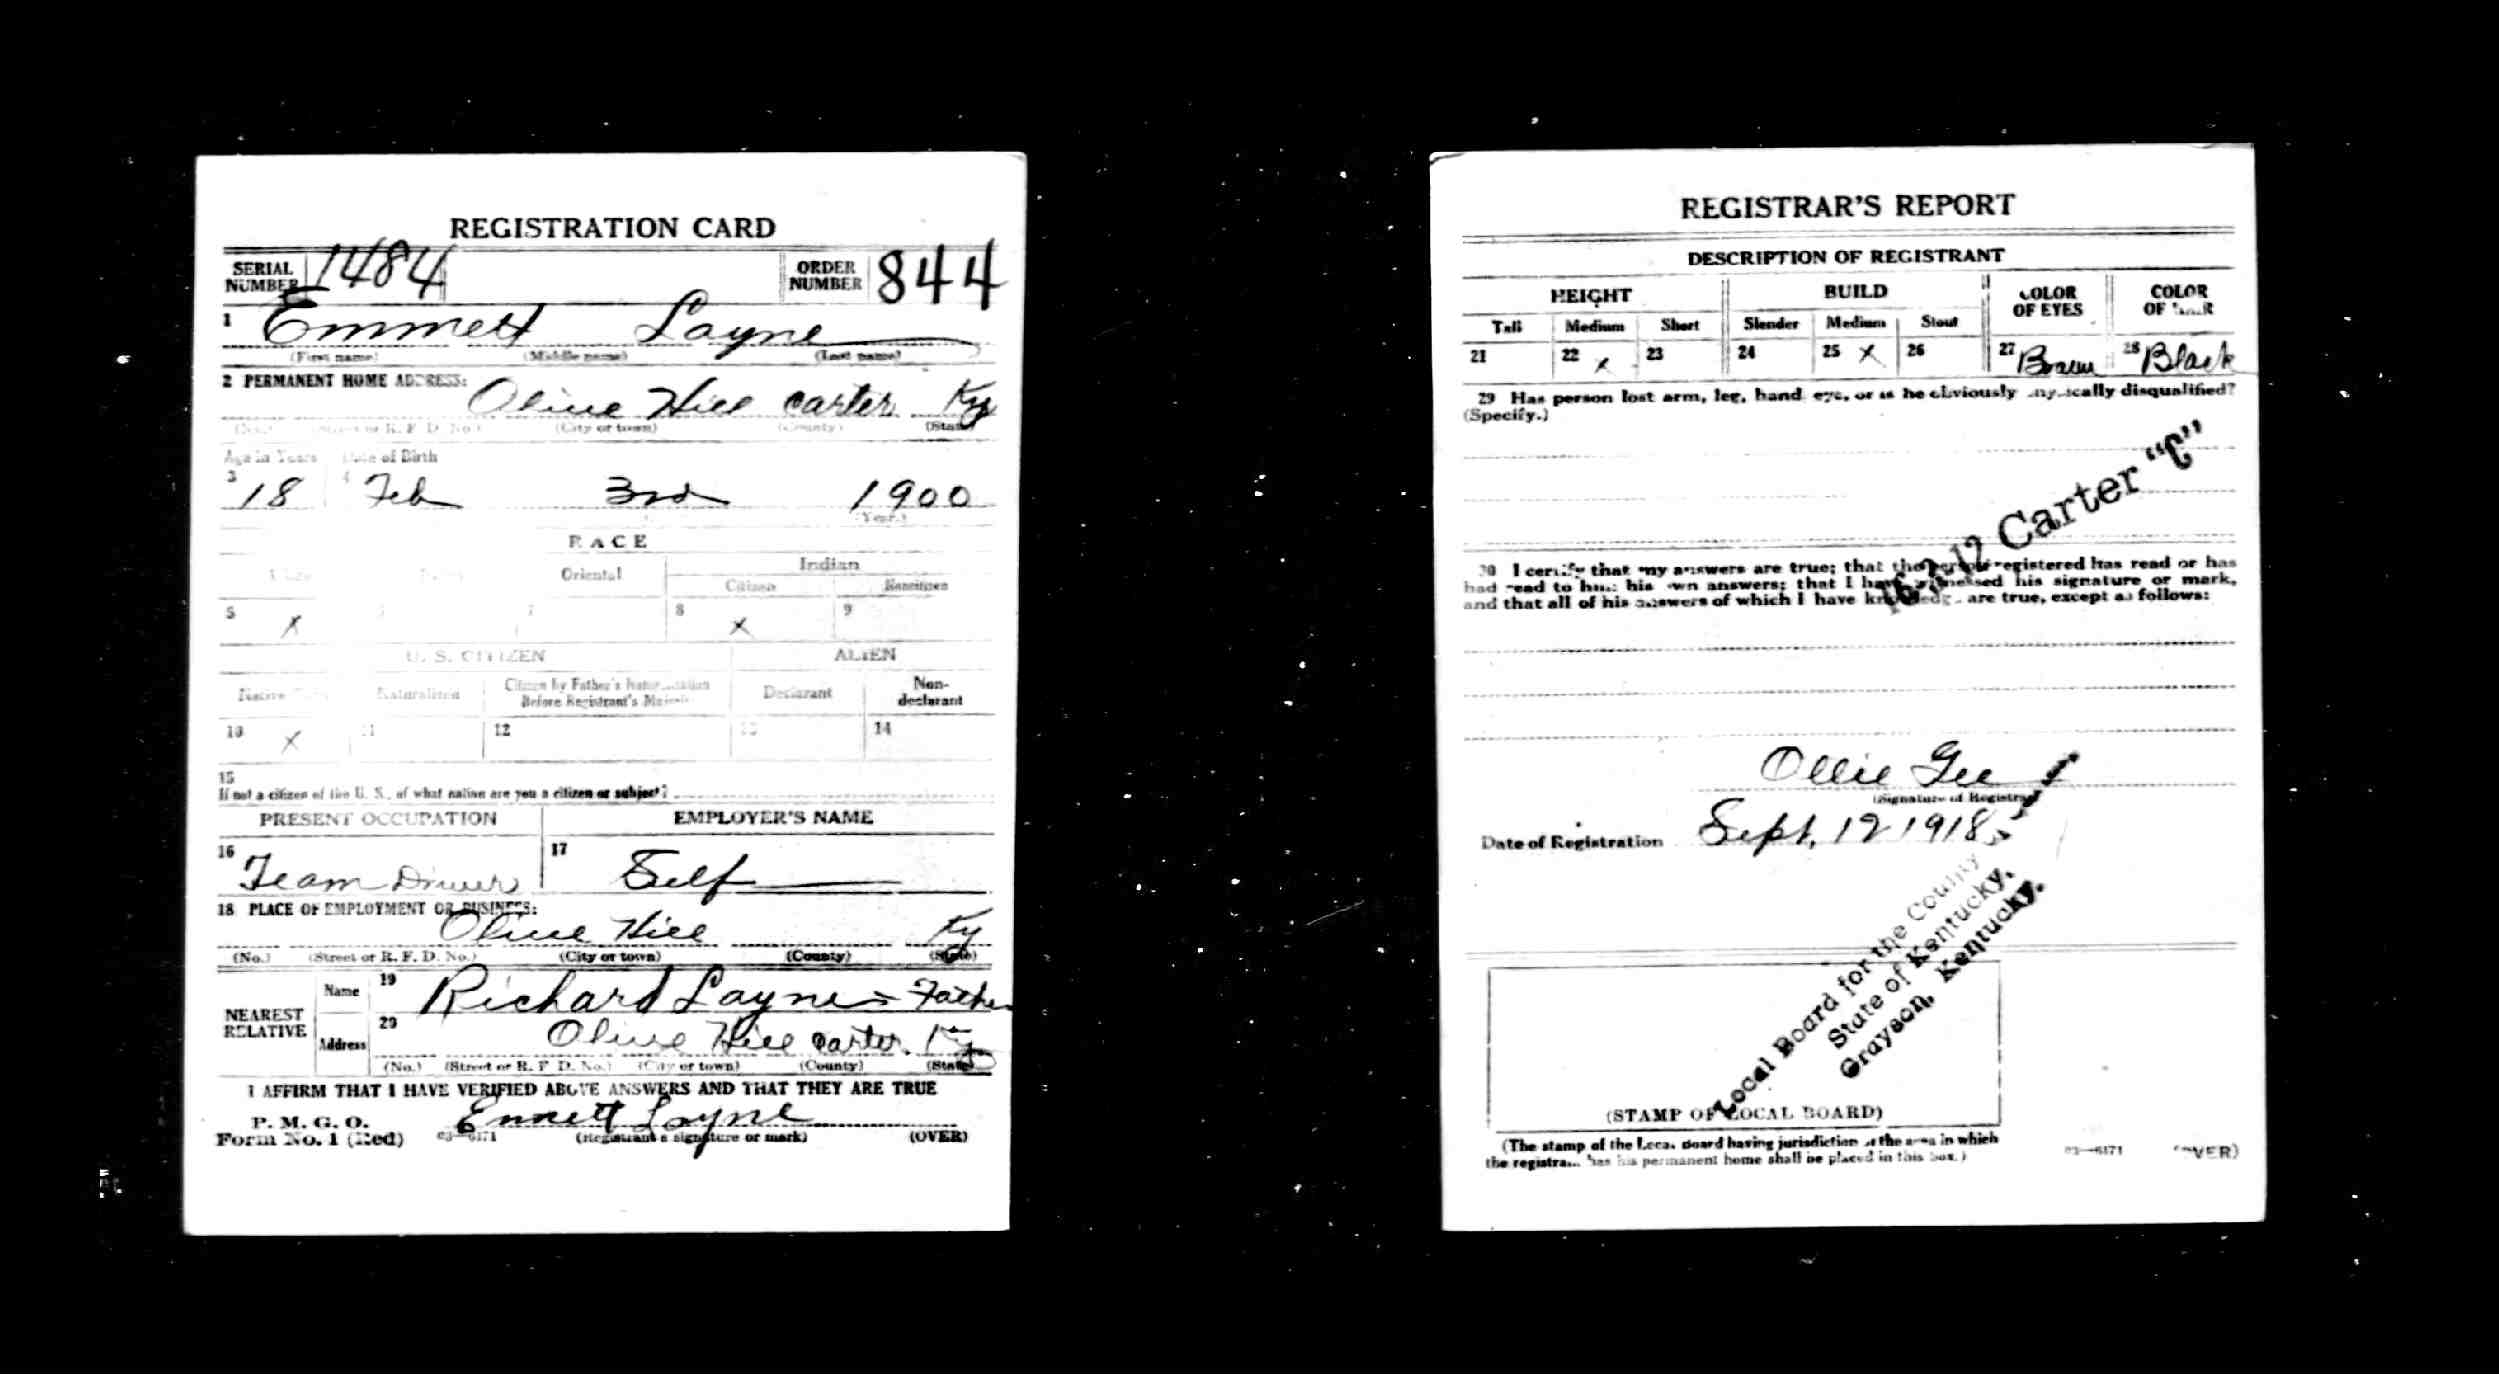 REGISTRATION CARD
SERIAL NUMBER 1484 ORDER NUMBER 844
1 Emmett Layne
(First name) (Middle name) (Last name)
2 PERMANENT HOME ADDRESS:
Olive Hill Carter Ky
(No.) (Street or R. F. D. No.) (City or town) (County) (State)
Age in Years Date of Birth
3 18 4 Feb 3rd 1900
(Year.)
RACE
Oriental Indian
Citizen Noncitizen
5 X 7 8 X 9
U. S. CITIZEN ALIEN
Native Naturalized Citizen by Father's Naturalization Before Registrant's Majority Declarant Non-declarant
10 X 11 12 13 14
15
If not a citizen of the U. S., of what nation are you a citizen or subject?
PRESENT OCCUPATION EMPLOYER'S NAME
16 Team Driver 17 Self
18 PLACE OF EMPLOYMENT OR BUSINESS:
Olive Hill Ky
(No.) (Street or R. F. D. No.) (City or town) (County) (State)
NEAREST RELATIVE Name 19 Richard Layne - Father
Address 20 Olive Hill Carter Ky
(No.) (Street or R. F. D. No.) (City or town) (County) (State)
I AFFIRM THAT I HAVE VERIFIED ABOVE ANSWERS AND THAT THEY ARE TRUE
P. M. G. O.
Form No. 1 (Red) 03—6171 Emmett Layne
(Registrant's signature or mark) (OVER)
REGISTRAR'S REPORT
DESCRIPTION OF REGISTRANT
HEIGHT BUILD COLOR OF EYES COLOR OF HAIR
Tall Medium Short Slender Medium Stout
21 22 X 23 24 25 X 26 27 Brown 28 Black
29 Has person lost arm, leg, hand, eye, or is he obviously physically disqualified?
(Specify.)
16-2-12 Carter "C"
30 I certify that my answers are true; that the person registered has read or has
had read to him his own answers; that I have witnessed his signature or mark,
and that all of his answers of which I have knowledge are true, except as follows:
Ollie Gee
(Signature of Registrar)
Date of Registration Sept, 12 1918
Local Board for the County
State of Kentucky,
Grayson, Kentucky.
(STAMP OF LOCAL BOARD)
(The stamp of the Local Board having jurisdiction of the area in which
the registrant has his permanent home shall be placed in this box.)
03—6171 (OVER)